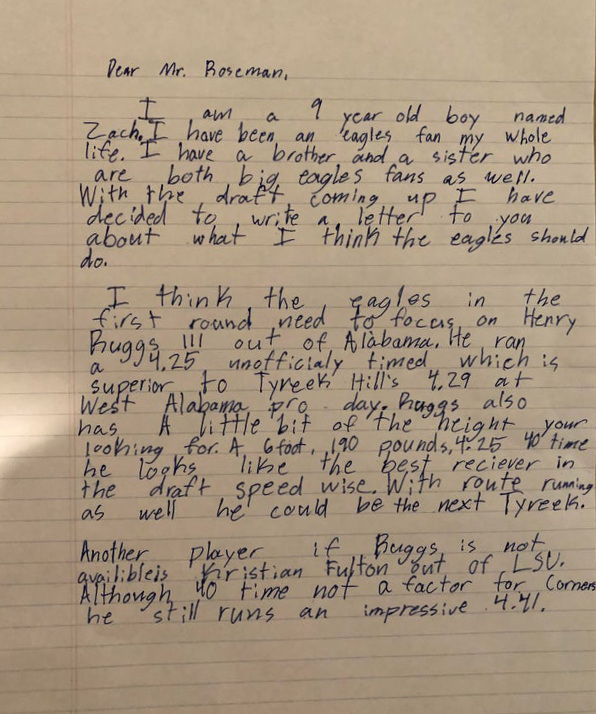 Dear Mr. Roseman,
I am a 9 year old boy named
Zach. I have been an eagles fan my whole
life. I have a brother and a sister who
are both big eagles fans as well.
With the draft coming up I have
decided to write a letter to you
about what I think the eagles should
do.
I think the eagles in the
first round need to focus on Henry
Ruggs III out of Alabama. He ran
a 4.25 unofficialy timed which is
superior to Tyreek Hill's 4.29 at
West Alabama pro day. Ruggs also
has A little bit of the height your
looking for. A 6foot, 190 pounds, 4.25 40 time
he looks like the best reciever in
the draft speed wise. With route running
as well he could be the next Tyreek.
Another player if Ruggs is not
availibleis Kiristian Fulton out of LSU.
Although 40 time not a factor for Corners
he still runs an impressive 4.41.